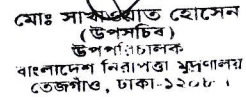 মোঃ সাখাওয়াত হোসেন
(উপসচিব)
উপপরিচালক
বাংলাদেশ নিরাপত্তা মুদ্রণালয়
তেজগাঁও, ঢাকা-১২০৮।